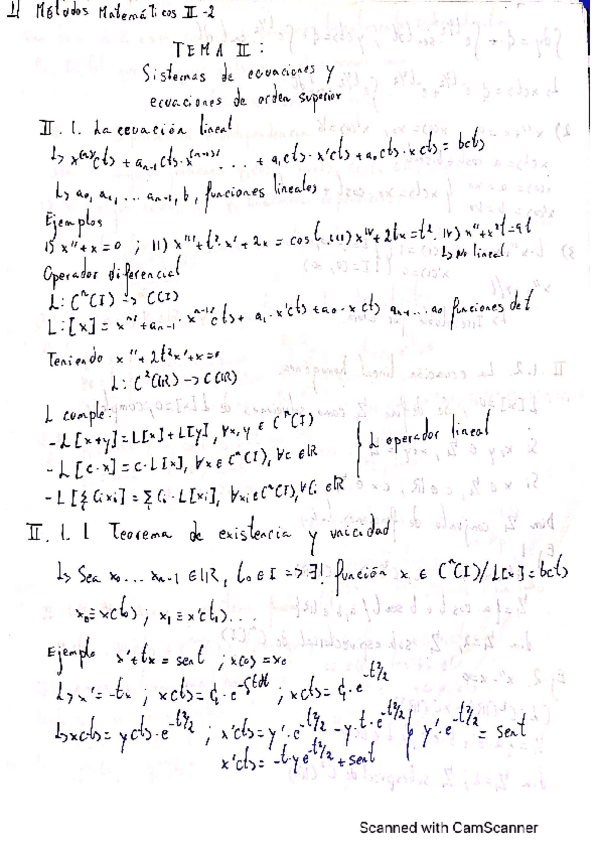 1] Métodos Matemáticos II-2
TEMA II:
Sistemas de ecuaciones y
ecuaciones de orden superior
II.1. La ecuación lineal
↳ x⁽ⁿ⁾(t) + aₙ₋₁(t)·x⁽ⁿ⁻¹⁾ ... + a₁(t)·x'(t) + a₀(t)·x(t) = b(t)
↳ a₀, a₁, ... aₙ₋₁, b, funciones lineales
Ejemplos
I) x''+x=0; II) x'''+t²·x'+2x = cost. III) x^IV+2tx=t². IV) x''+x³t=9t
↳ No lineal
Operador diferencial
L: Cⁿ(I) -> C(I)
L:[x] = xⁿ⁾+aₙ₋₁·xⁿ⁻¹⁾(t)+ a₁·x'(t)+a₀·x(t) aₙ₋₁...a₀ funciones de t
Teniendo x''+2t²x'+x=0
L: C²(IR) -> C(IR)
L cumple:
-L[x+y]=L[x]+L[y], ∀x,y ∈ Cⁿ(I)
-L[c·x]=c·L[x], ∀x∈Cⁿ(I), ∀c∈IR
L operador lineal
-L[Σ Ci xi]=Σ Ci·L[xi], ∀xi∈Cⁿ(I), ∀Ci∈IR
II.1.1 Teorema de existencia y unicidad
↳ Sea x₀...xₙ₋₁ ∈IR, t₀∈I => ∃! función x ∈ Cⁿ(I)/L[x]=b(t)
x₀=x(t₀); x₁=x'(t₀)...
Ejemplo x'+tx=sent; x(0)=x₀
↳ x'=-tx; x(t)=C₁·e^-∫tdt; x(t)=C₁·e^-t²/2
↳ x(t)=y(t)·e^-t²/2; x'(t)=y'·e^-t²/2-y·t·e^-t²/2 } y'·e^-t²/2 = sent
x'(t)=-t·y·e^-t²/2+sent
Scanned with CamScanner